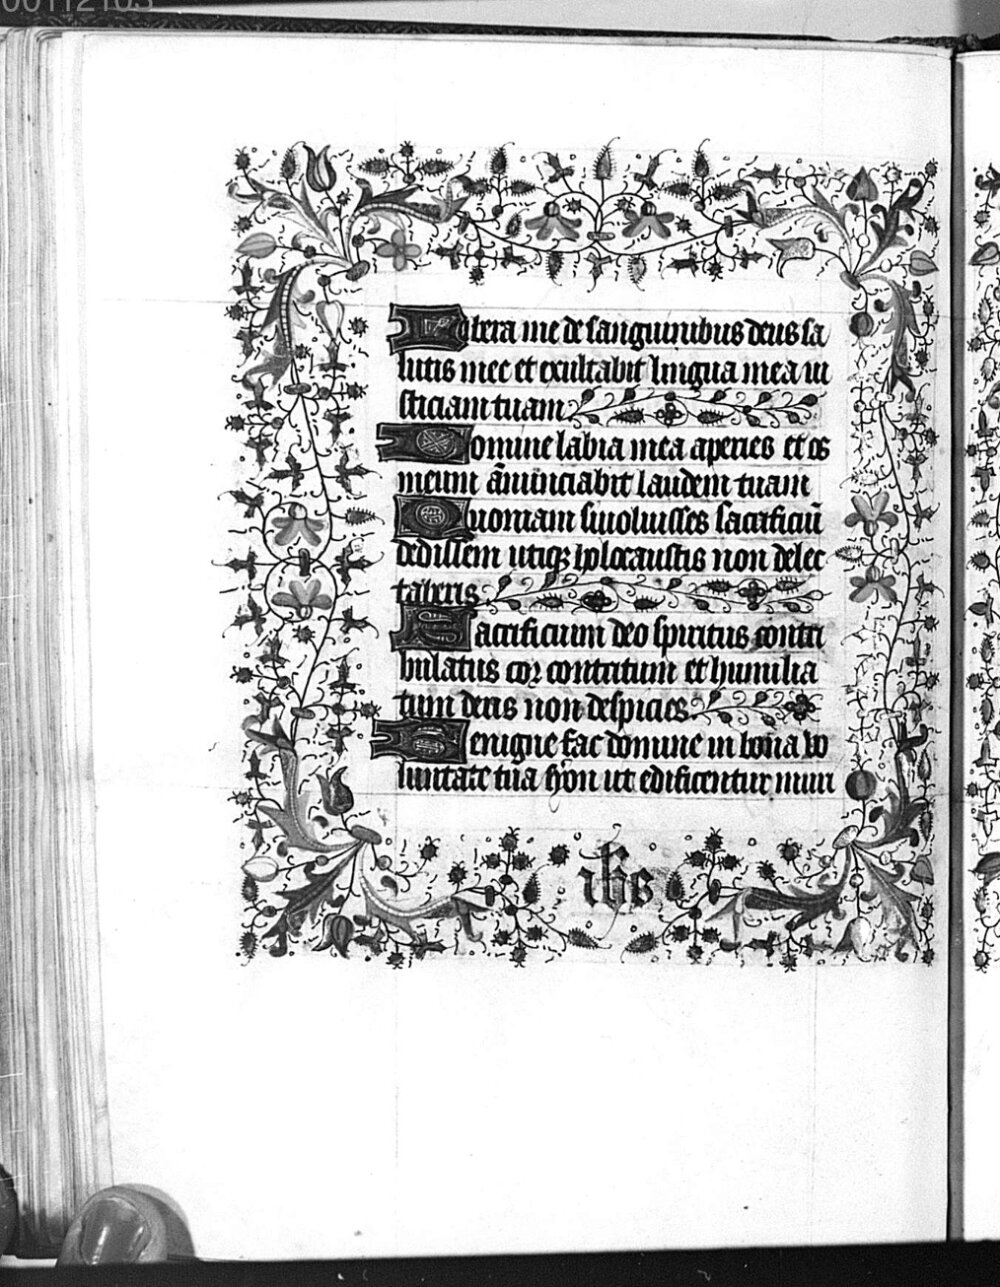 00112103
Libera me de sanguinibus deus sa
lutis mee et exultabit lingua mea iu
sticiam tuam
Domine labia mea aperies et os
meum ānunciabit laudem tuam
Quoniam si uoluisses sacrificiū
dedissem utiqꝫ holocaustis non delec
taberis
Sacrificium deo spiritus contri
bulatus cor contritum et humilia
tum deus non despicies.
Benigne fac domine in bona vo
luntate tua syon ut edificentur muri
ihs